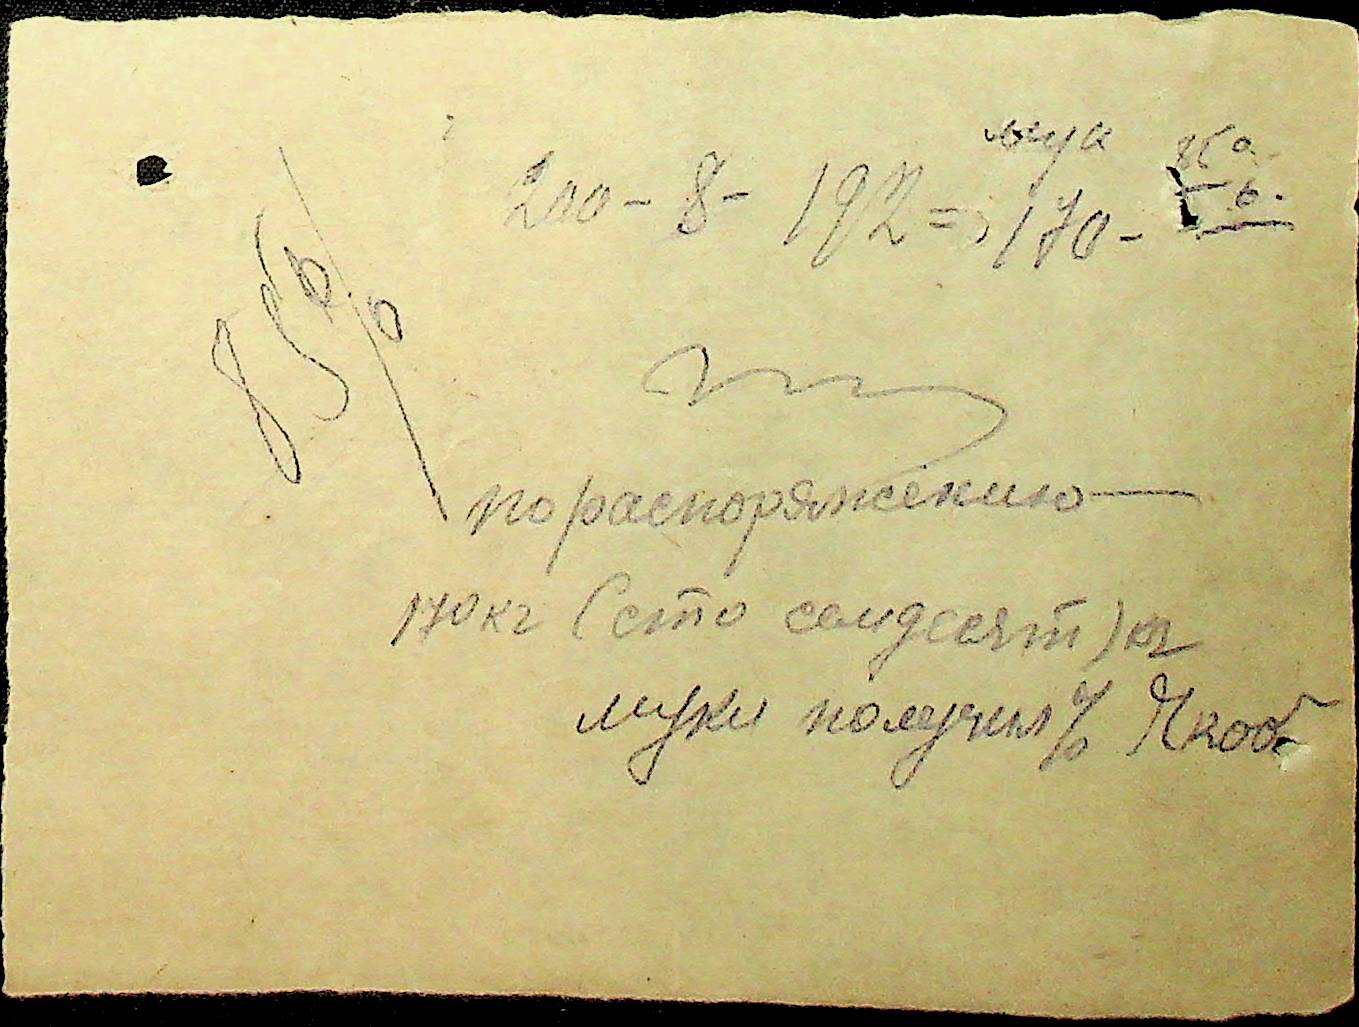 мука
200 - 8 - 192 = 170 -
85%
по распоряжению
170 кг (сто семдесят) кг
муки получил